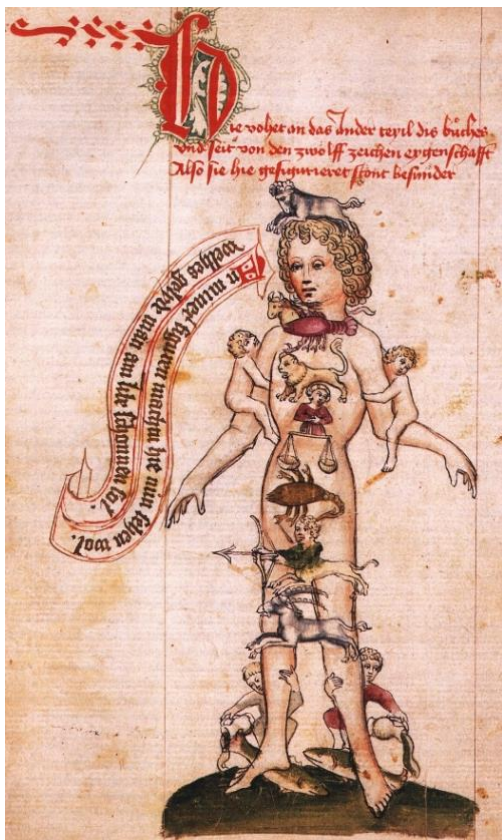 Hie vohet an das Ander teyil dis bůches
vnd seit von den zwölff zeichen eygenschafft
Also sie hie gefigurieret stont besunder
In miner figuren machtu hie min sehen wol.
welhes man am schouwen sol.